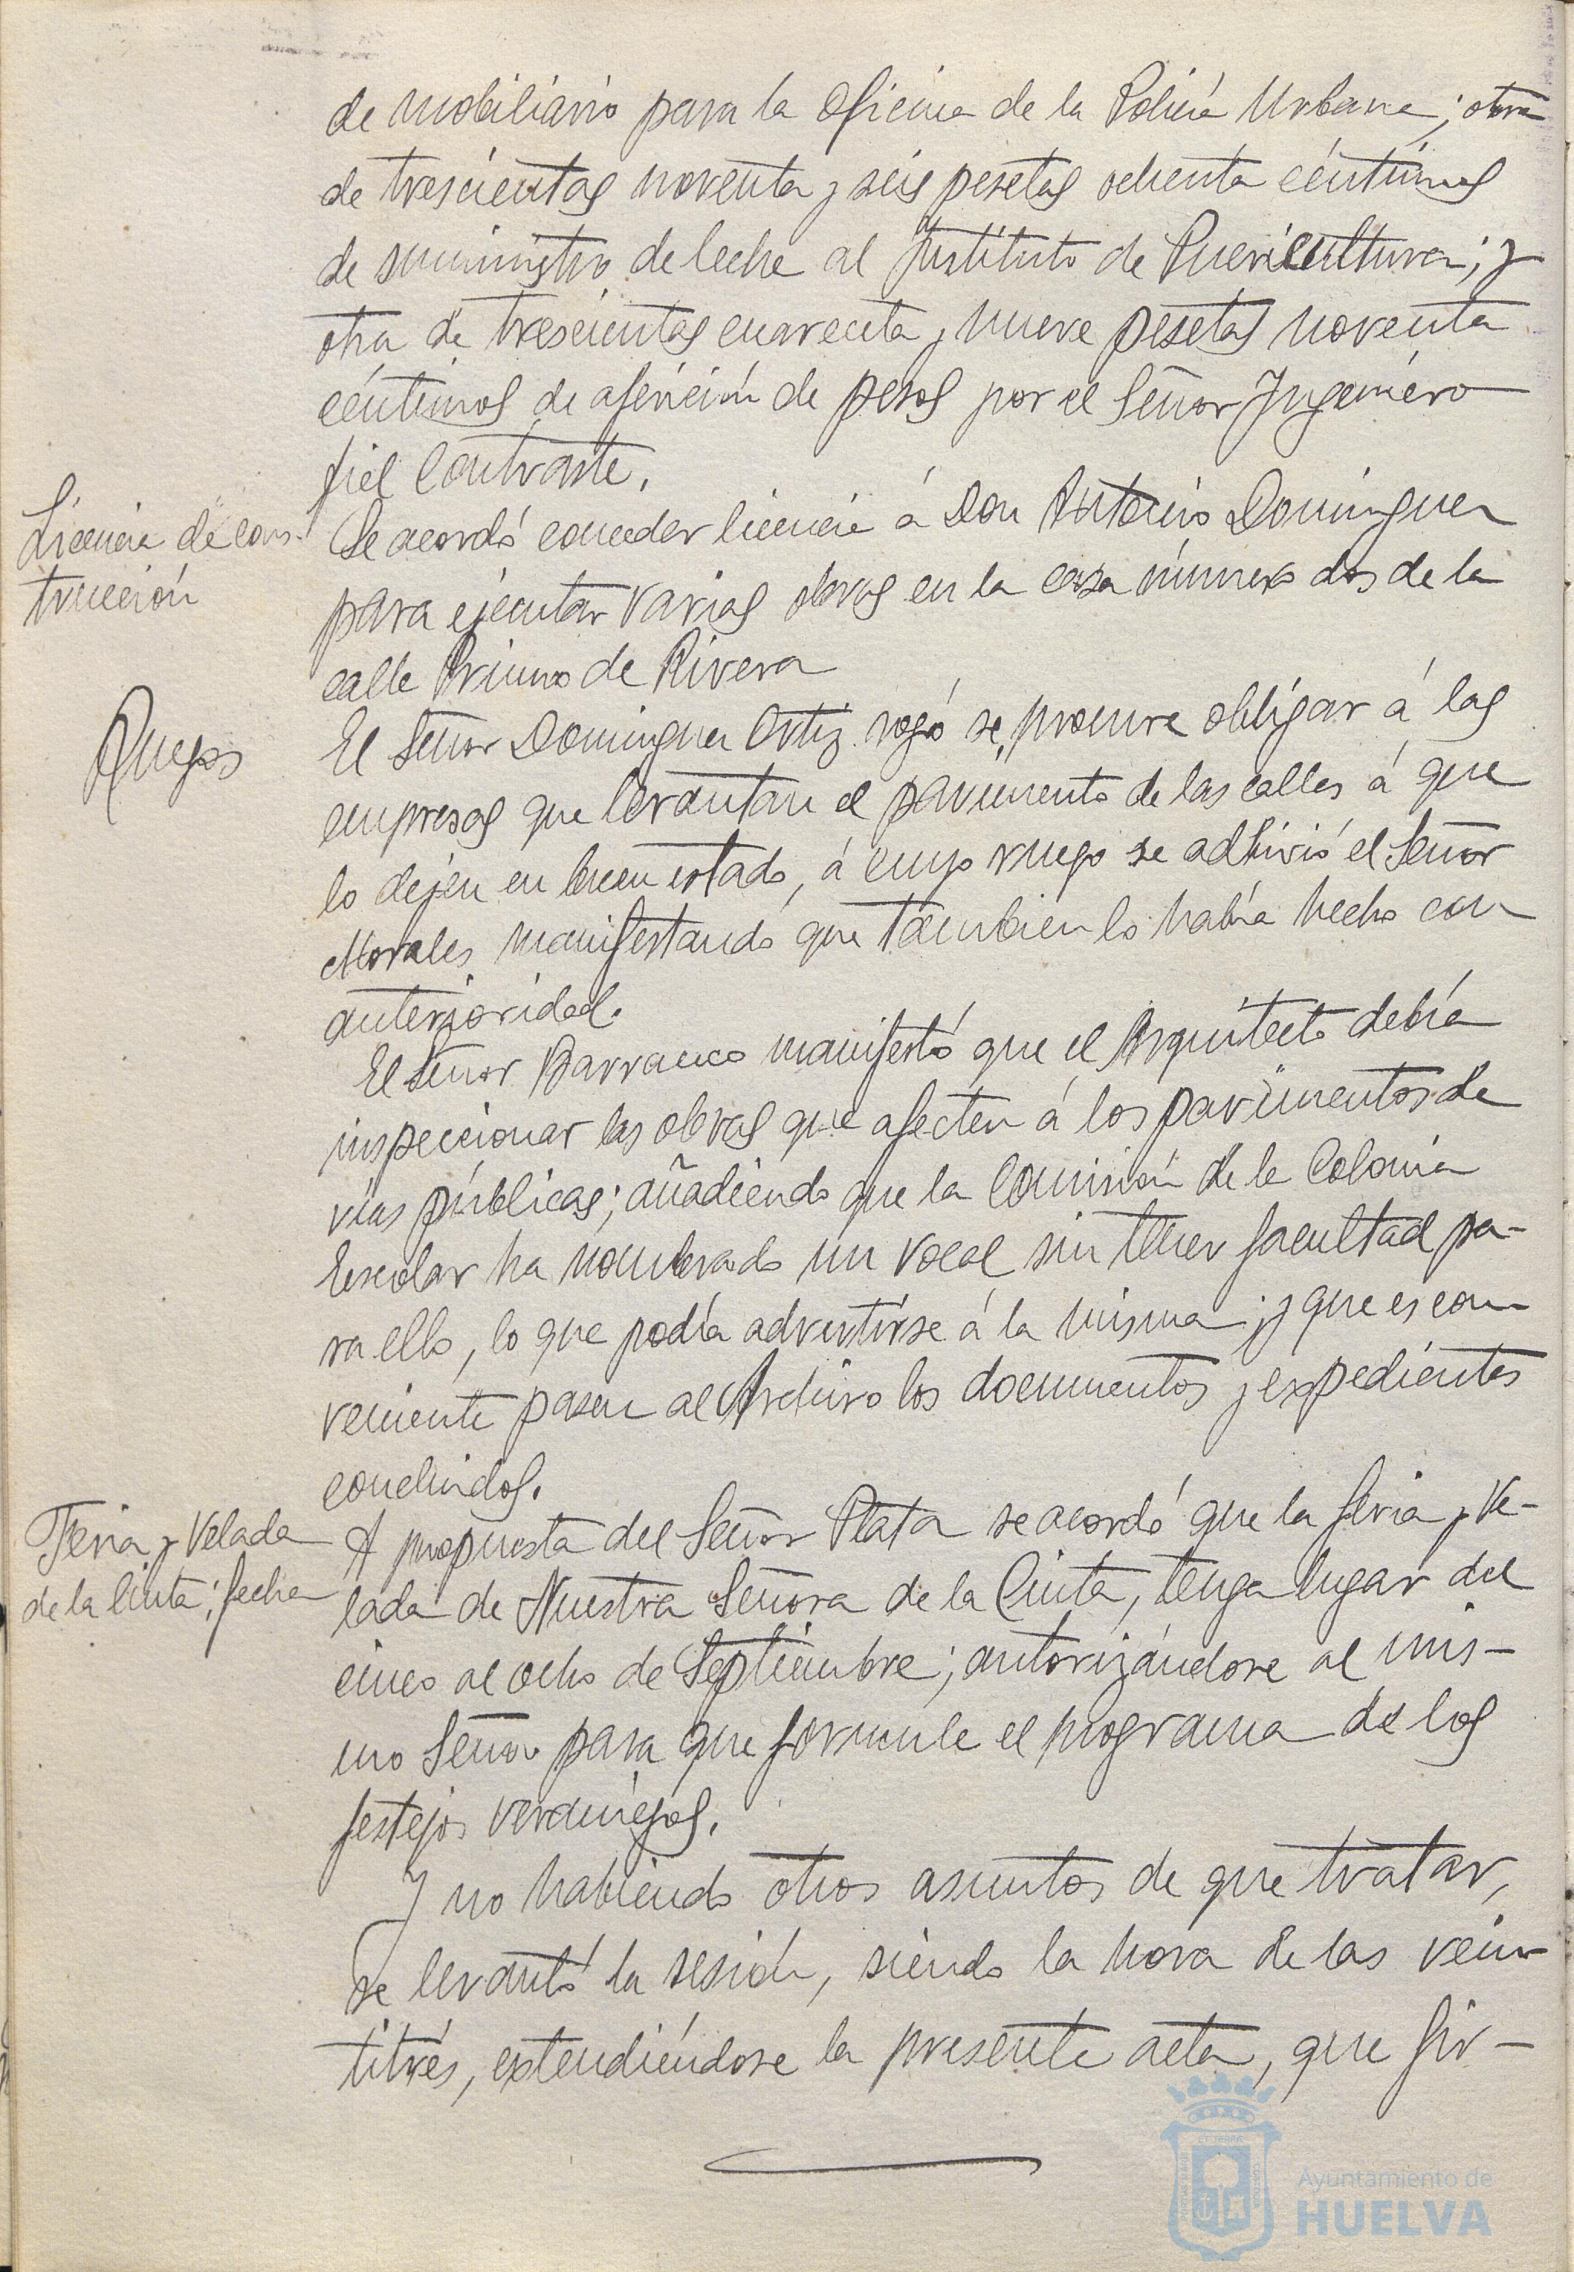 de mobiliario para la oficina de la Policía Urbana; otra
de trescientas noventa y seis pesetas ochenta céntimos
de suministro de leche al Instituto de Puericultura; y
otra de trescientas cuarenta y nueve pesetas noventa
céntimos de aferición de pesos por el Señor Ingeniero
fiel Contraste.
Licencia de cons-
trucción
Se acordó conceder licencia á Don Antonio Dominguez
para ejecutar varias obras en la casa número dos de la
calle Primo de Rivera
Ruegos
El Señor Dominguez Ortiz rogó se procure obligar á las
empresas que levantan el pavimento de las calles á que
lo dejen en buen estado, á cuyo ruego se adhirió el Señor
Morales manifestando que también lo había hecho con
anterioridad.
El Señor Barranco manifestó que el Arquitecto debía
inspeccionar las obras que afecten á los pavimentos de
vías públicas; añadiendo que la Comisión de la Colonia
Escolar ha nombrado un vocal sin tener facultad pa-
ra ello, lo que podía advertirse á la misma; y que es con-
veniente pasen al Archivo los documentos y expedientes
concluidos.
Feria y Velada
de la Cinta; fecha
A propuesta del Señor Plata se acordó que la feria y Ve-
lada de Nuestra Señora de la Cinta, tenga lugar del
cinco al ocho de Septiembre; autorizándose al mis-
mo Señor para que formule el programa de los
festejos veraniegos.
Y no habiendo otros asuntos de que tratar,
se levantó la sesión, siendo la hora de las vein-
titrés, extendiéndose la presente acta, que fir-
Ayuntamiento de
HUELVA